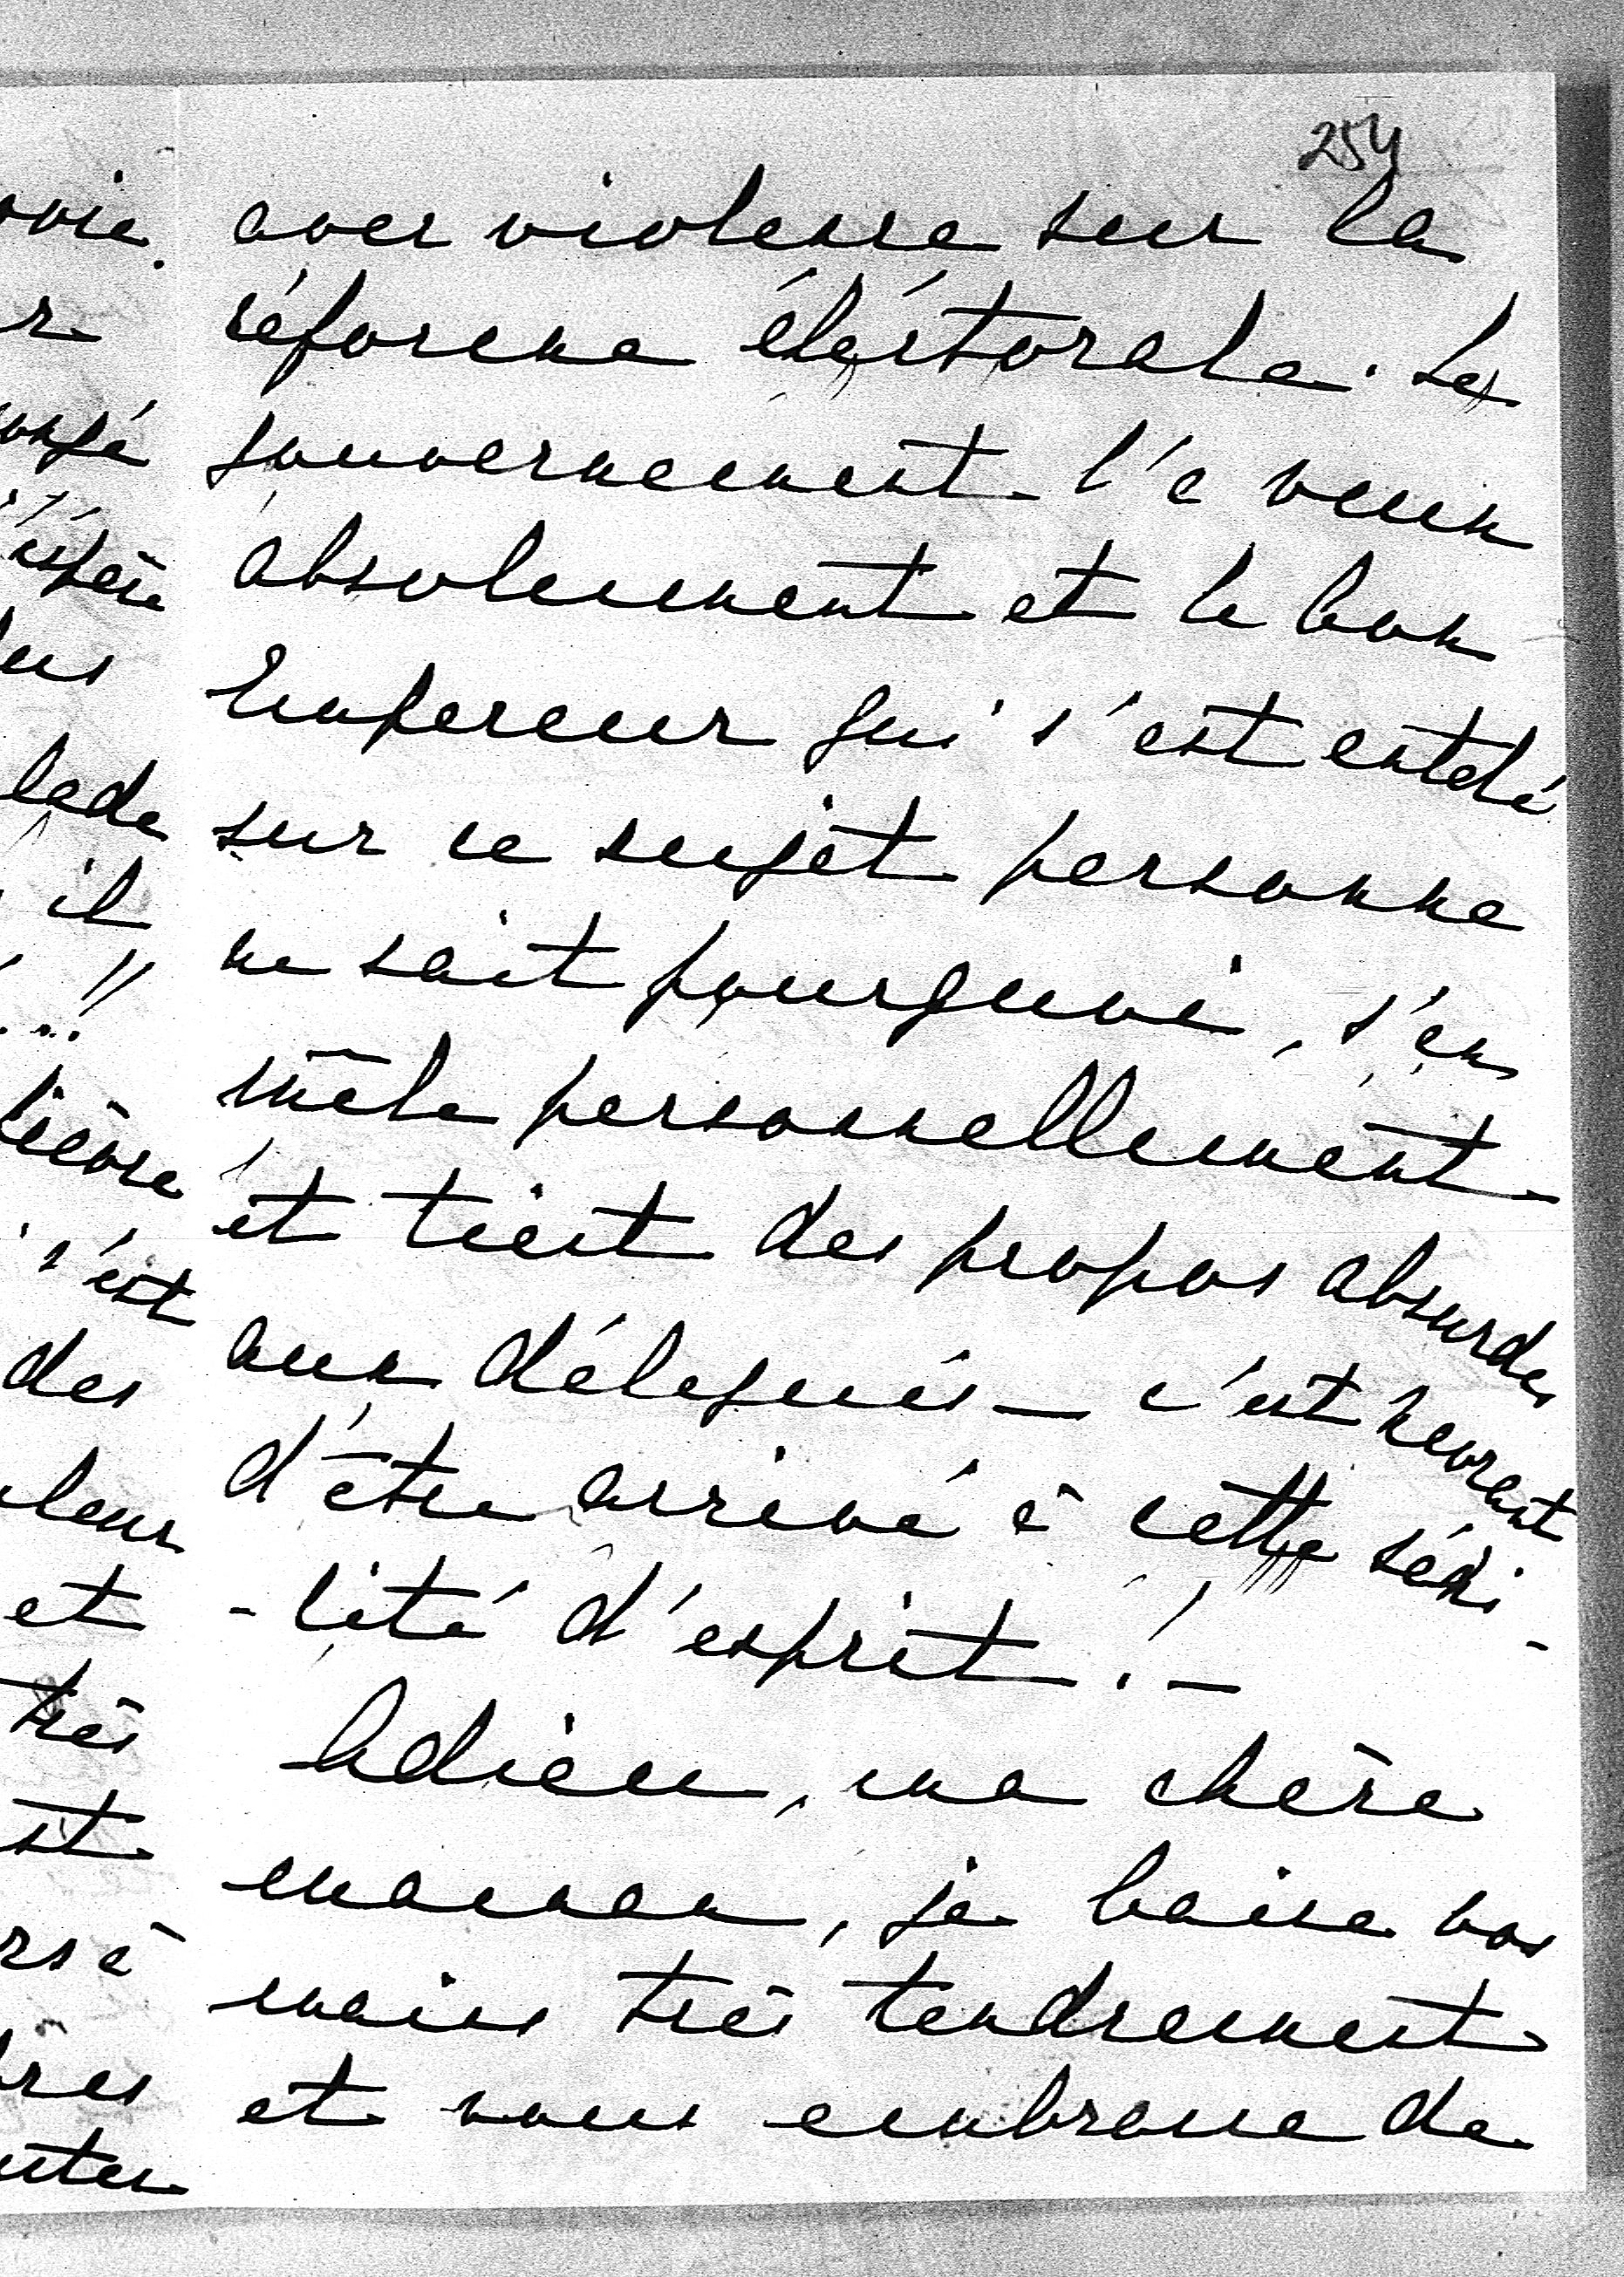 254
avec violence sur la
réforme éléctorale. Le
gouvernement l'a
absolument et le bon
Empereur qui s'est entêté
sur ce sujet personne
ne sait pourquoi, s'en
mêle personnellement
et tient des propos absurdes
aux délegués – c'est navrant
d'être arrivé à cette séni-
-lité d'esprit! –
Adieu, ma chère
maman, je baise vos
mains très tendrement
et vous embrasse de
lade
il
s'est
des
et
très